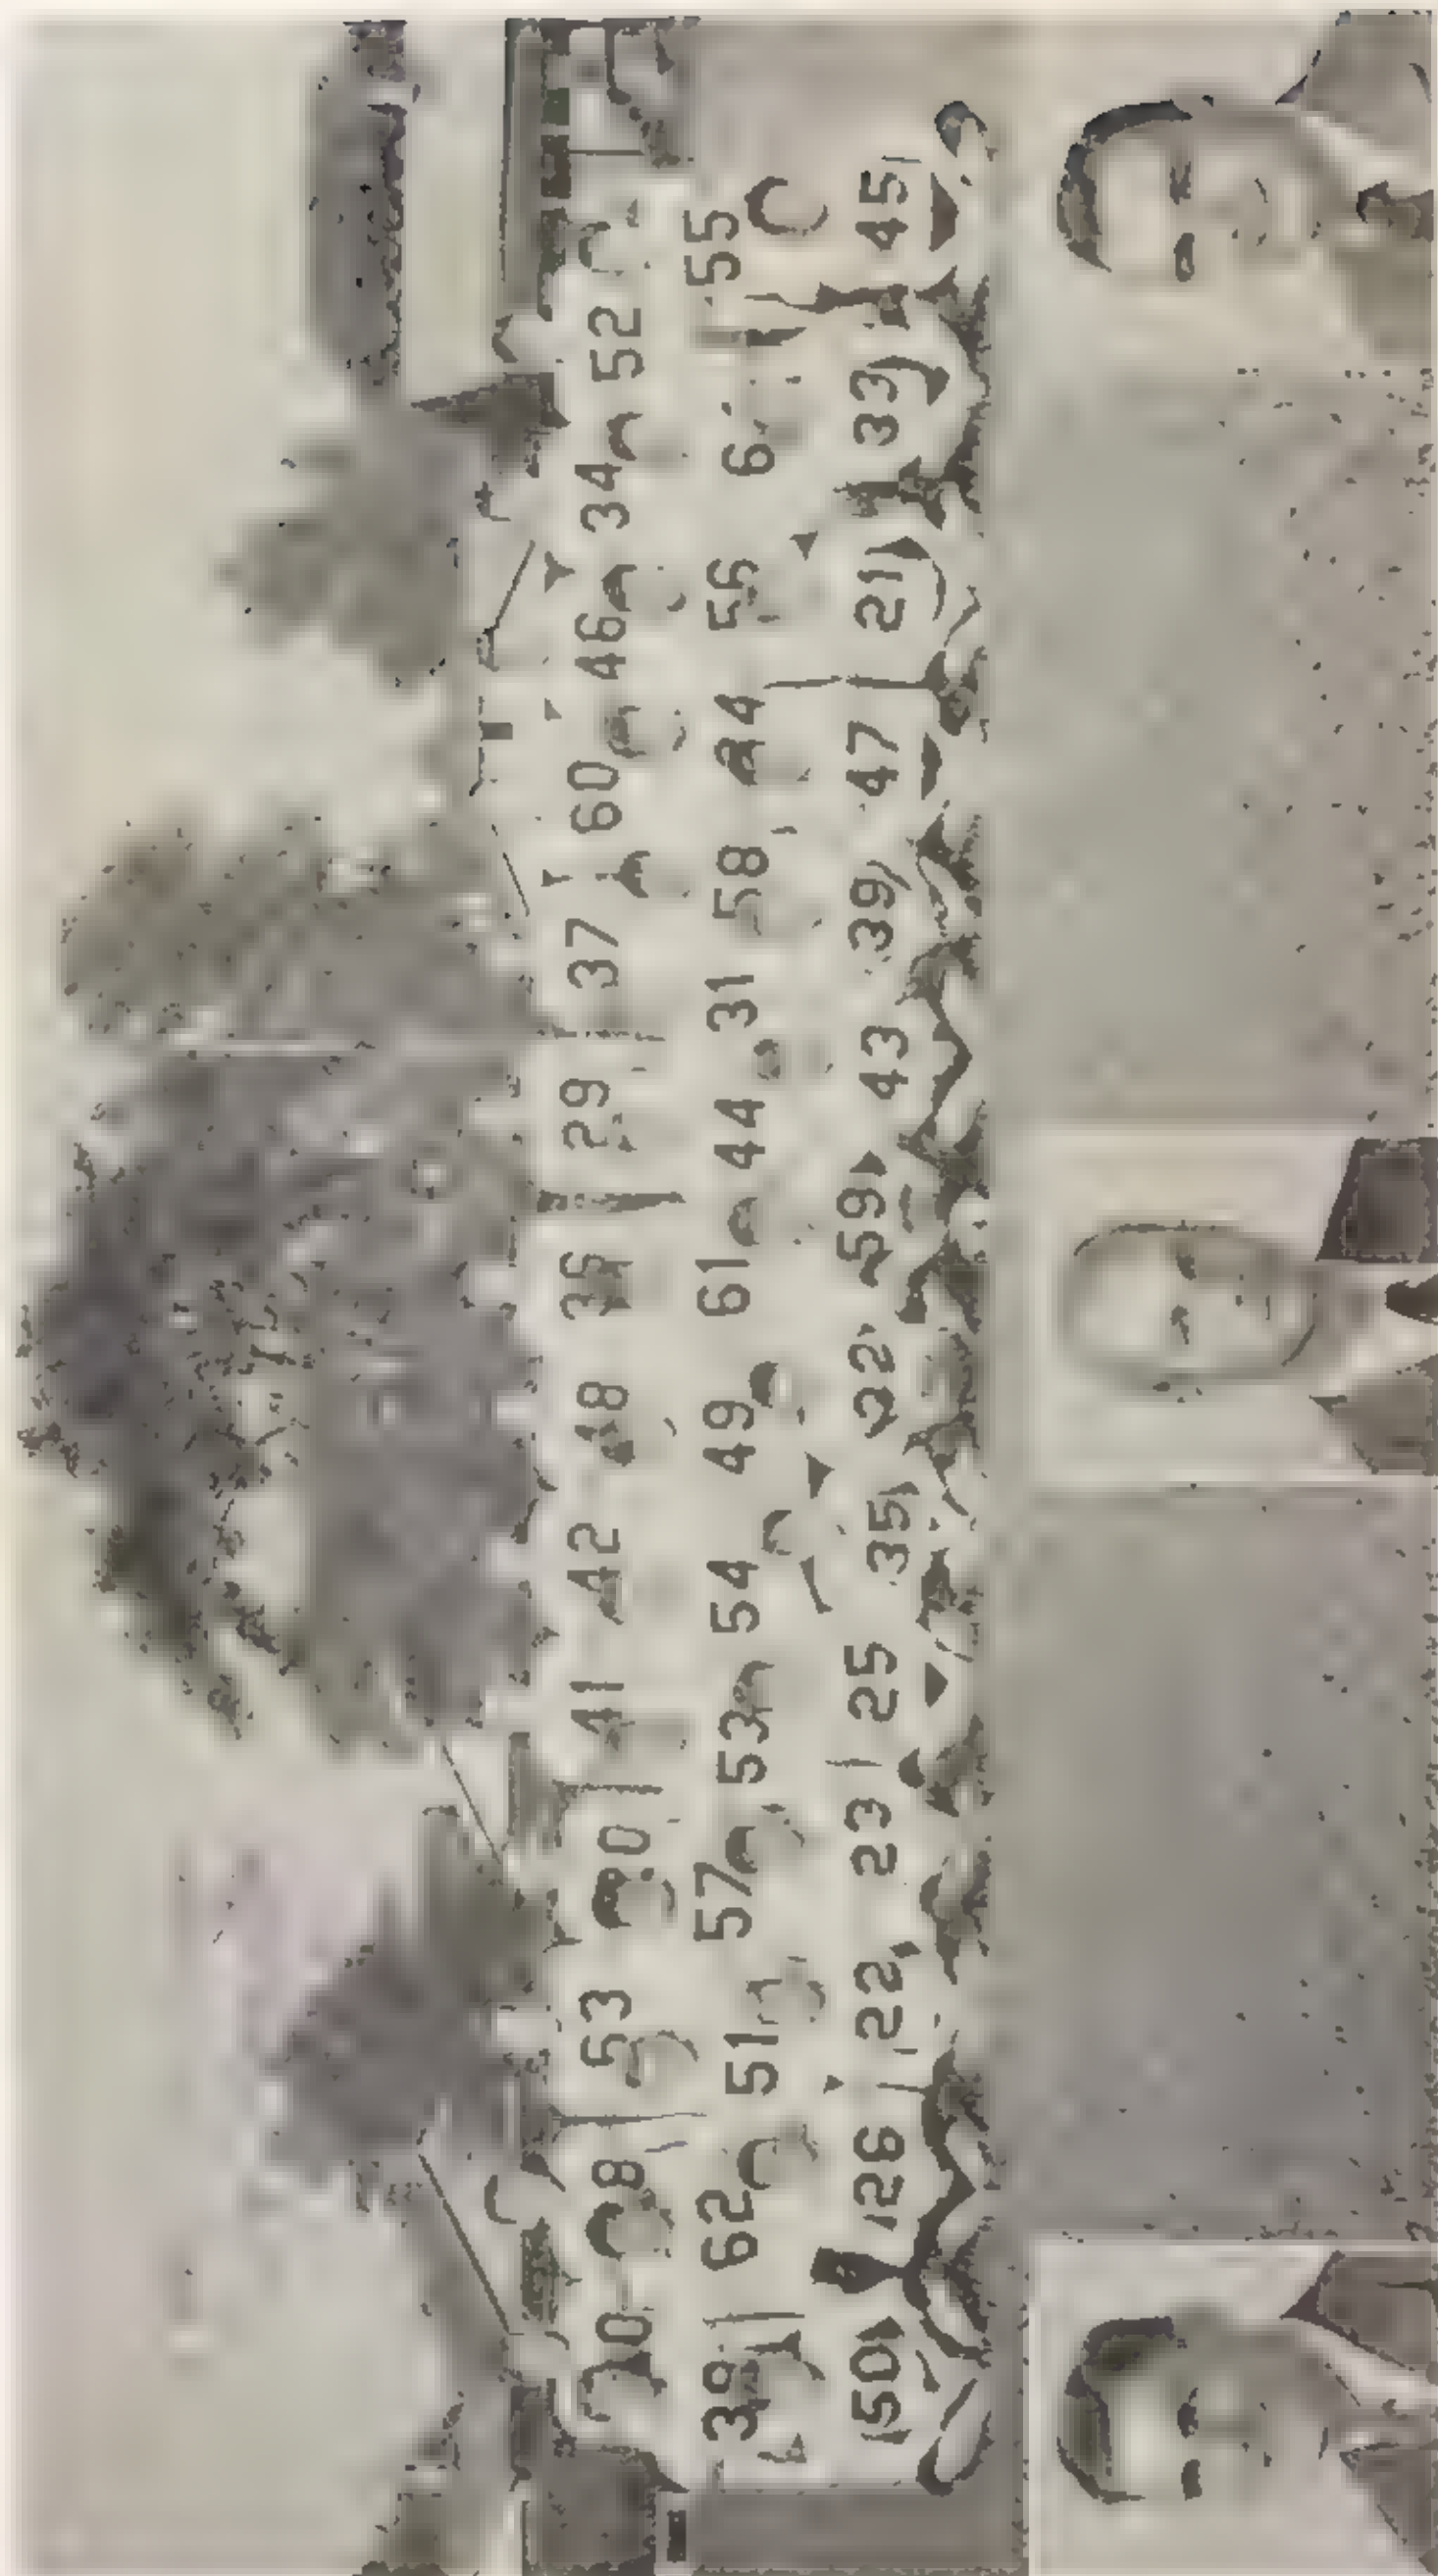 10 53 41 42 48 36 29 37 60 46 34 52
38 62 51 57 53 54 49 61 44 31 58 56 55
50 26 22 23 25 35 32 59 43 39 47 21 33 45